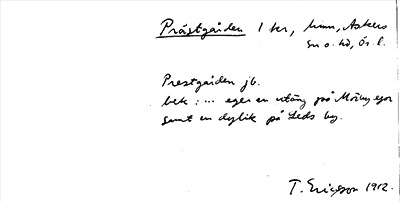 Prästgården 1 kr, hmn, Askers
sn o. hd, Ör. l.
Prestgården jb.
bek: ... eger en utäng på Möby egor
samt en dylik på Leds by.
T. Ericsson 1912.